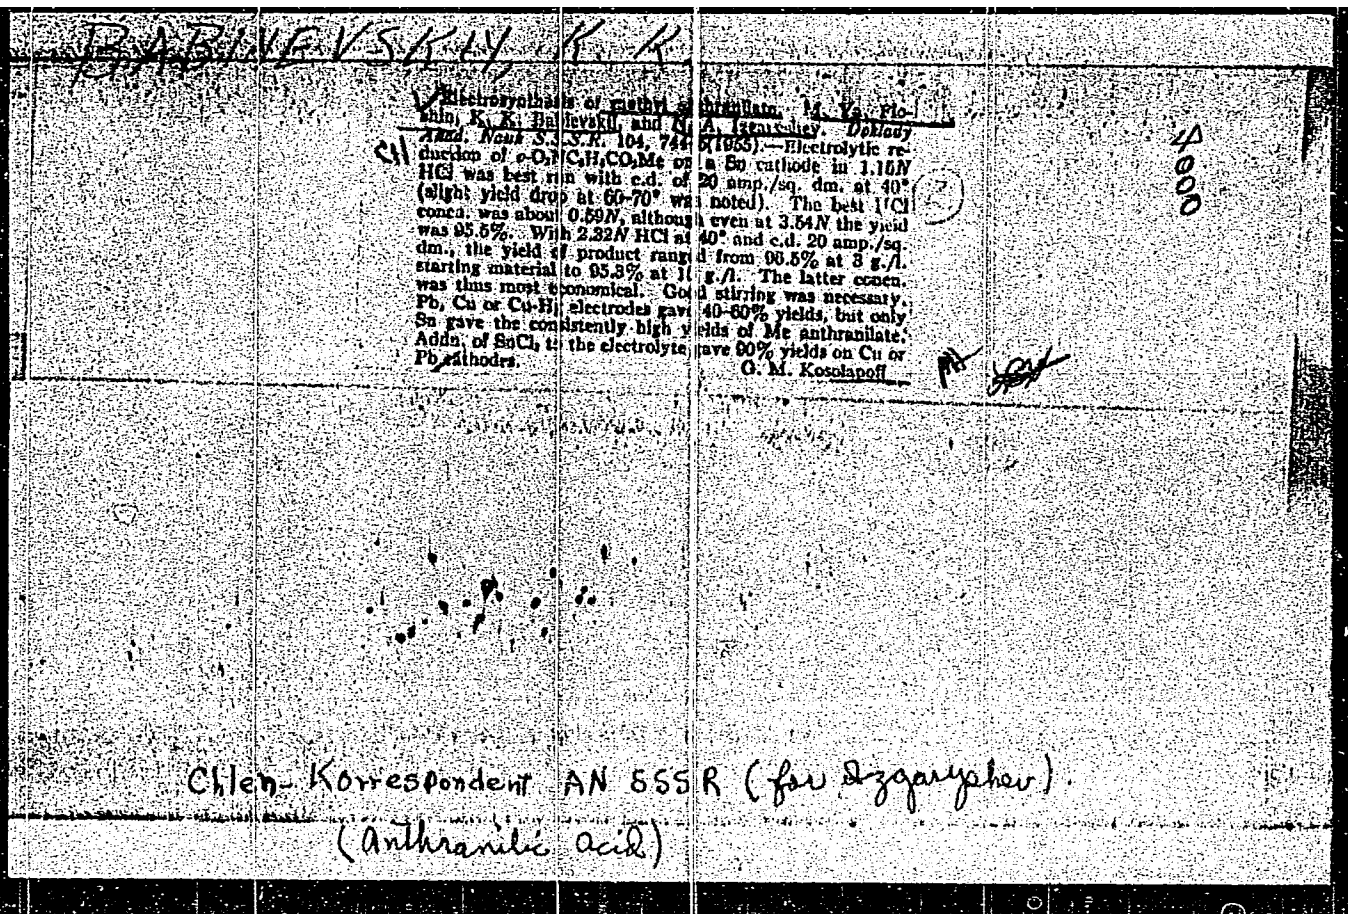 BABINEVSKIY, K. K.
Electrosynthesis of methyl anthranilate. M. Ya. Fio-
shin, K. K. Babievskii, and N. A. Izgaryshev. Doklady
Akad. Nauk S.S.S.R. 104, 744-5(1955).—Electrolytic re-
duction of o-O₂NC₆H₄CO₂Me on a Sn cathode in 1.15N
HCl was best run with c.d. of 20 amp./sq. dm. at 40°
(slight yield drop at 60-70° was noted). The best HCl
concn. was about 0.59N, although even at 3.54N the yield
was 95.5%. With 2.32N HCl at 40° and c.d. 20 amp./sq.
dm., the yield of product ranged from 96.5% at 3 g./l.
starting material to 95.3% at g./l. The latter concn.
was thus most economical. Good stirring was necessary.
Pb, Cu or Cu-Hg electrodes gave 40-60% yields, but only
Sn gave the consistently high yields of Me anthranilate.
Addn. of SnCl₂ to the electrolyte gave 90% yields on Cu or
Pb cathodes. G. M. Kosolapoff
CH
2
4
0
0
0
Chlen-Korrespondent AN SSSR (for Izgaryshev).
(Anthranilic acid)